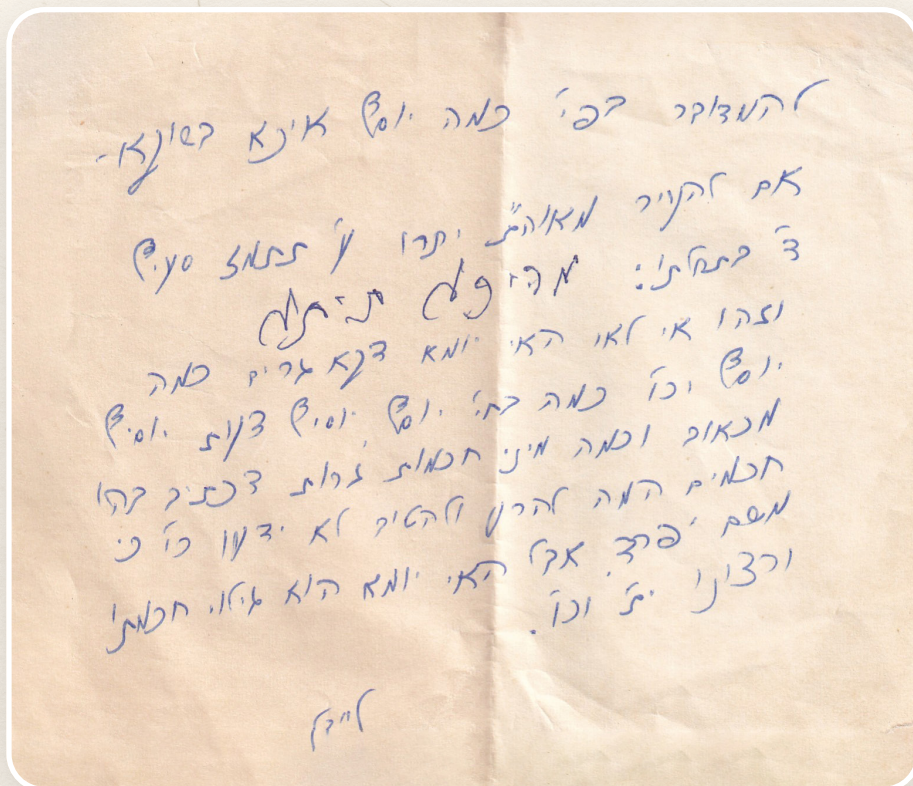 להמדובר בפי׳ כמה יוסף איכא בשוקא -
אם להעיר מאוה״ת יתרו ע׳ תתמז סעיף
ד׳ בתחלתו:
וזהו אי לאי האי יומא דקא גרים כמה
יוסף וכו׳ כמה בחי׳ יוסף יוסיף דעת יוסיף
מכאוב וכמה מיני חכמות גרות דכתיב בהו
חכמים המה להרע ולהטיב לא ידעו כו׳ כי
משם יפרד אבל האי יומא הוא גילוי חכמתו
ורצונו ית׳ וכו׳.